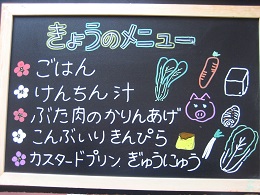 きょうのメニュー
ごはん
けんちん汁
ぶた肉のかりんあげ
こんぶいりきんぴら
カスタードプリン ぎゅうにゅう